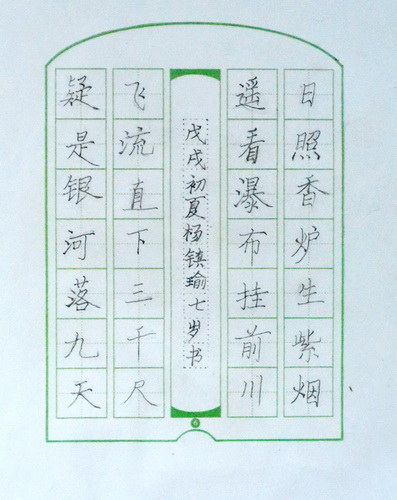 日照香炉生紫烟
遥看瀑布挂前川
飞流直下三千尺
疑是银河落九天
戊戌初夏杨镇瑜七岁书